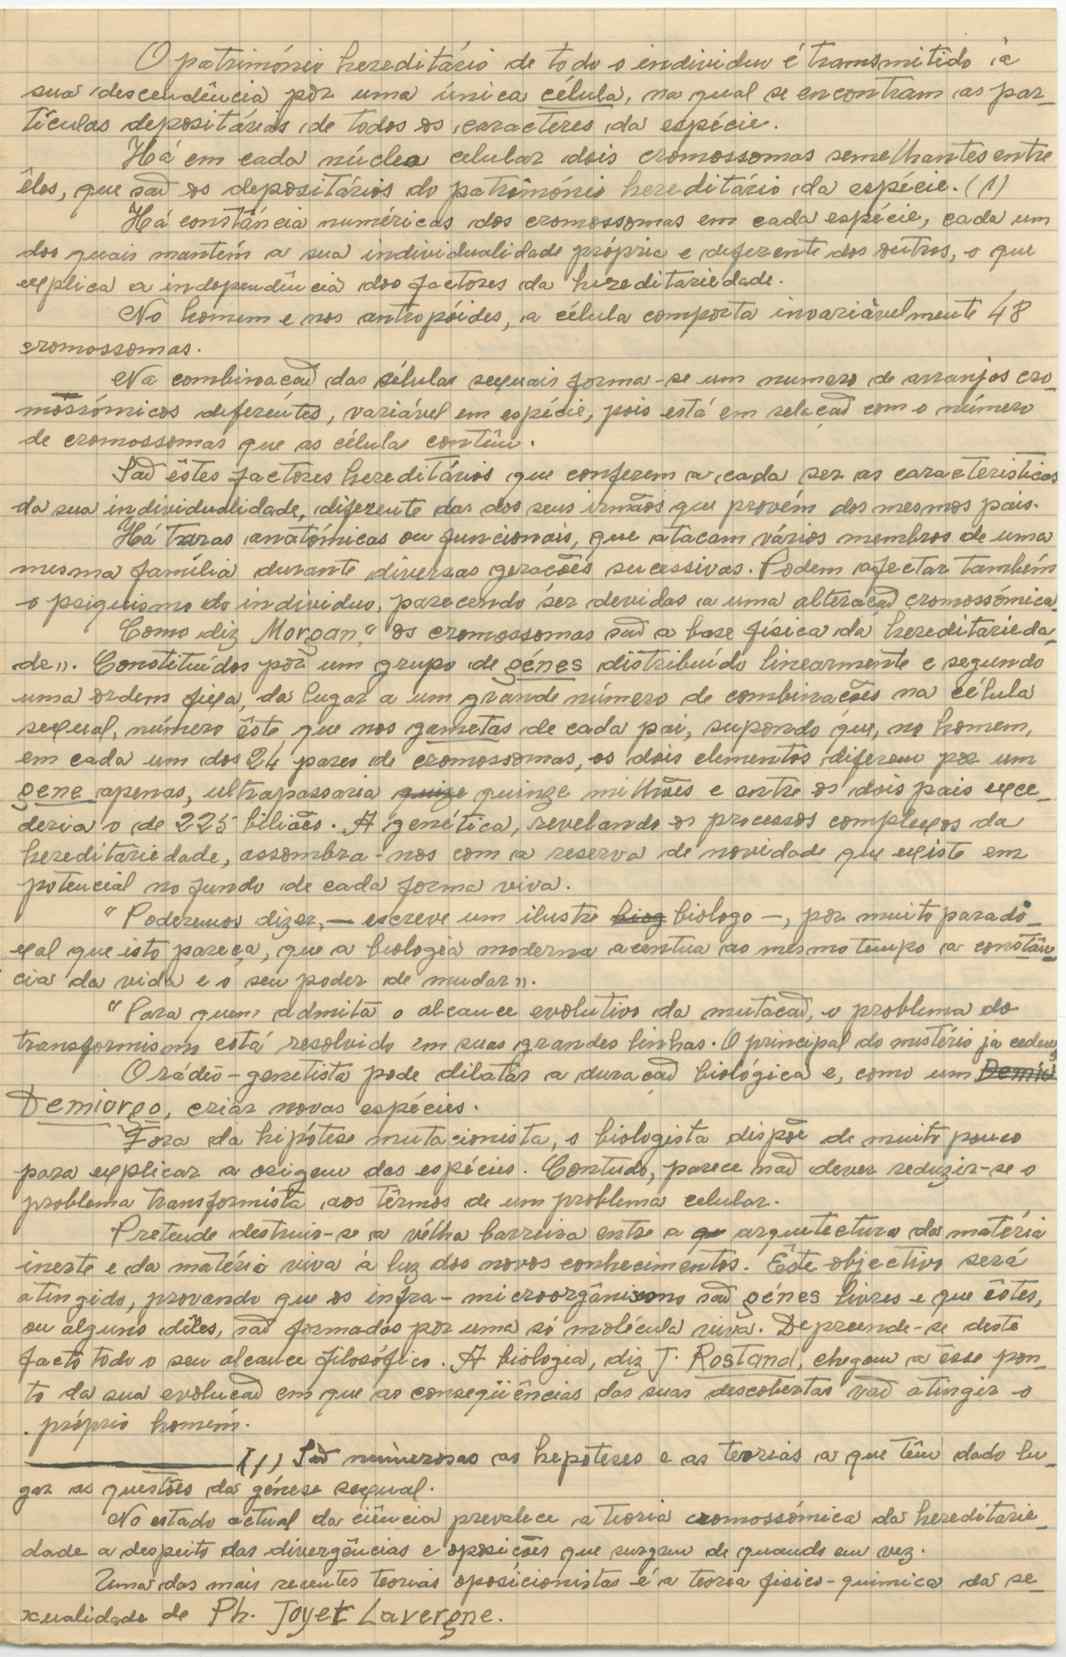 O património hereditário de todo o individuo é transmitido à
sua descendência por uma única célula, na qual se encontram as par-
tículas depositárias de todos os caracteres da espécie.
Há em cada núcleo celular dois cromossomas semelhantes entre
êles, que são os depositários do património hereditário da espécie. (1)
Há constância numéricas dos cromossomas em cada espécie, cada um
dos quais mantém a sua individualidade própria e diferente dos outros, o que
explica a independência dos factores da hereditariedade.
No homem e nos antropóides, a célula comporta invariàvelmente 48
cromossomas.
Na combinação das células sexuais forma-se um numero de arranjos cro-
mossómicos diferentes, variável em espécie, pois está em relação com o número
de cromossomas que as célula contêm.
São êstes factores hereditários que conferem a cada ser as caracteristicas
da sua individualidade, diferente das dos seus irmãos que provém dos mesmos pais.
Há taras anatómicas ou funcionais, que atacam vários membros de uma
mesma família durante diversas gerações sucessivas. Podem afectar também
o psiquismo do individuo, parecendo ser devidas a uma alteração cromossómica.
Como diz Morgan, "os cromossomas são a base física da hereditarieda-
de». Constituídos por um grupo de génes distribuído linearmente e segundo
uma ordem fixa, da lugar a um grande número de combinações na célula
sexual, número êste, que nos gametas de cada pai, supondo que, no homem,
em cada um dos 24 pares de cromossomas, os dois elementos diferem por um
gene apenas, ultrapassaria quinze milhões e entre os dois pais exce-
deria o de 225 biliões. A genética, revelando os processos complexos da
hereditariedade, assombra-nos com a reserva de novidade que existe em
potencial no fundo de cada forma viva.
"Poderemos dizer, — escreve um ilustre biologo —, por muito parado-
xal que isto pareça, que a biologia moderna acentua ao mesmo tempo a constân-
cia da vida e o seu poder de mudar».
"Para quem admita o alcance evolutivo da mutação, o problema do
transformismo está resolvido em suas grandes linhas. O principal do mistério já cedeu;
O rádio-genetista pode dilatar a duração biológica e, como um Demiu
Demiurgo, criar novas espécies.
Fora da hipótese mutacionista, o biologista dispõe de muito pouco
para explicar a origem das espécies. Contudo, parece não dever reduzir-se o
problema transformista aos têrmos de um problema celular.
Pretende destruir-se a vélha barreira entre a arquitectura da matéria
inerte e da matéria viva à luz dos novos conhecimentos. Êste objectivo será
atingido, provando que os infra-microorgânismo são génes livres e que êstes,
ou alguns dêles, são formados por uma só molécula viva. Depreende-se deste
facto todo o seu alcance filosófico. A biologia, diz J. Rostand, chegou a êsse pon-
to da sua evolução em que as conseqüências das suas descobertas vão atingir o
próprio homem.
(1) São númerosas as hepóteses e as teorias a que têm dado lu-
gar as questões da génese sexual.
No estado actual da ciência prevalece a teoria cromossómica da hereditarie-
dade a despeito das divergências e oposições que surgem de quando em vez.
Uma das mais recentes teorias oposicionistas é a teoria fisico-quimica da se-
xualidade de Ph. Joyet Lavergne.